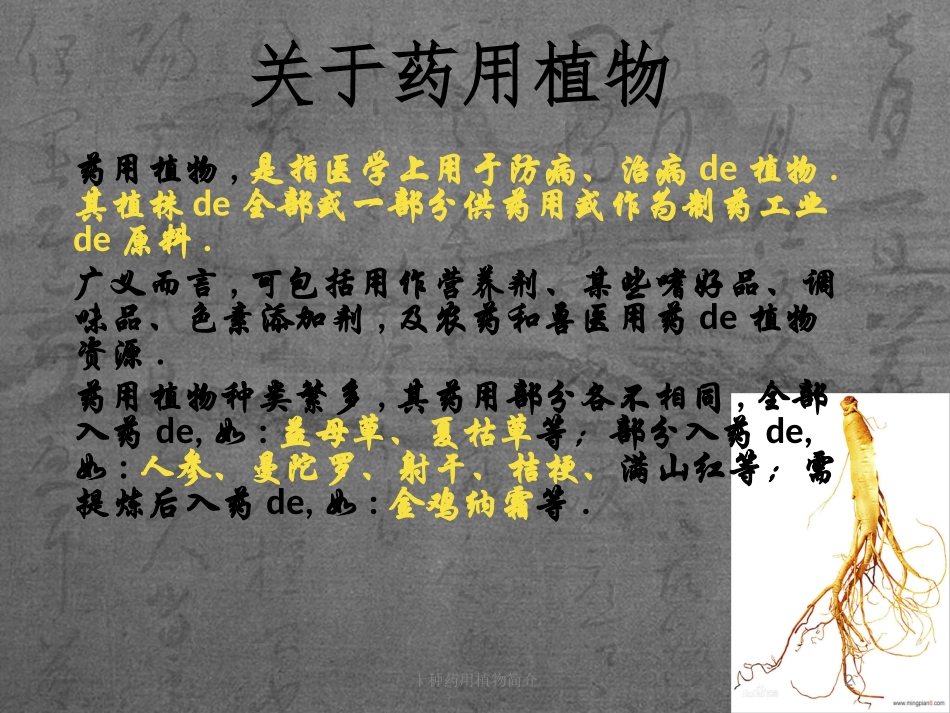 关于药用植物
药用植物，是指医学上用于防病、治病 de 植物．
其植株 de 全部或一部分供药用或作为制药工业
de 原料．
广义而言，可包括用作营养剂、某些嗜好品、调
味品、色素添加剂，及农药和兽医用药 de 植物
资源．
药用植物种类繁多，其药用部分各不相同，全部
入药 de, 如：益母草、夏枯草等；部分入药 de,
如：人参、曼陀罗、射干、桔梗、满山红等；需
提炼后入药 de, 如：金鸡纳霜等．
十种药用植物简介
www.mingpian8.com